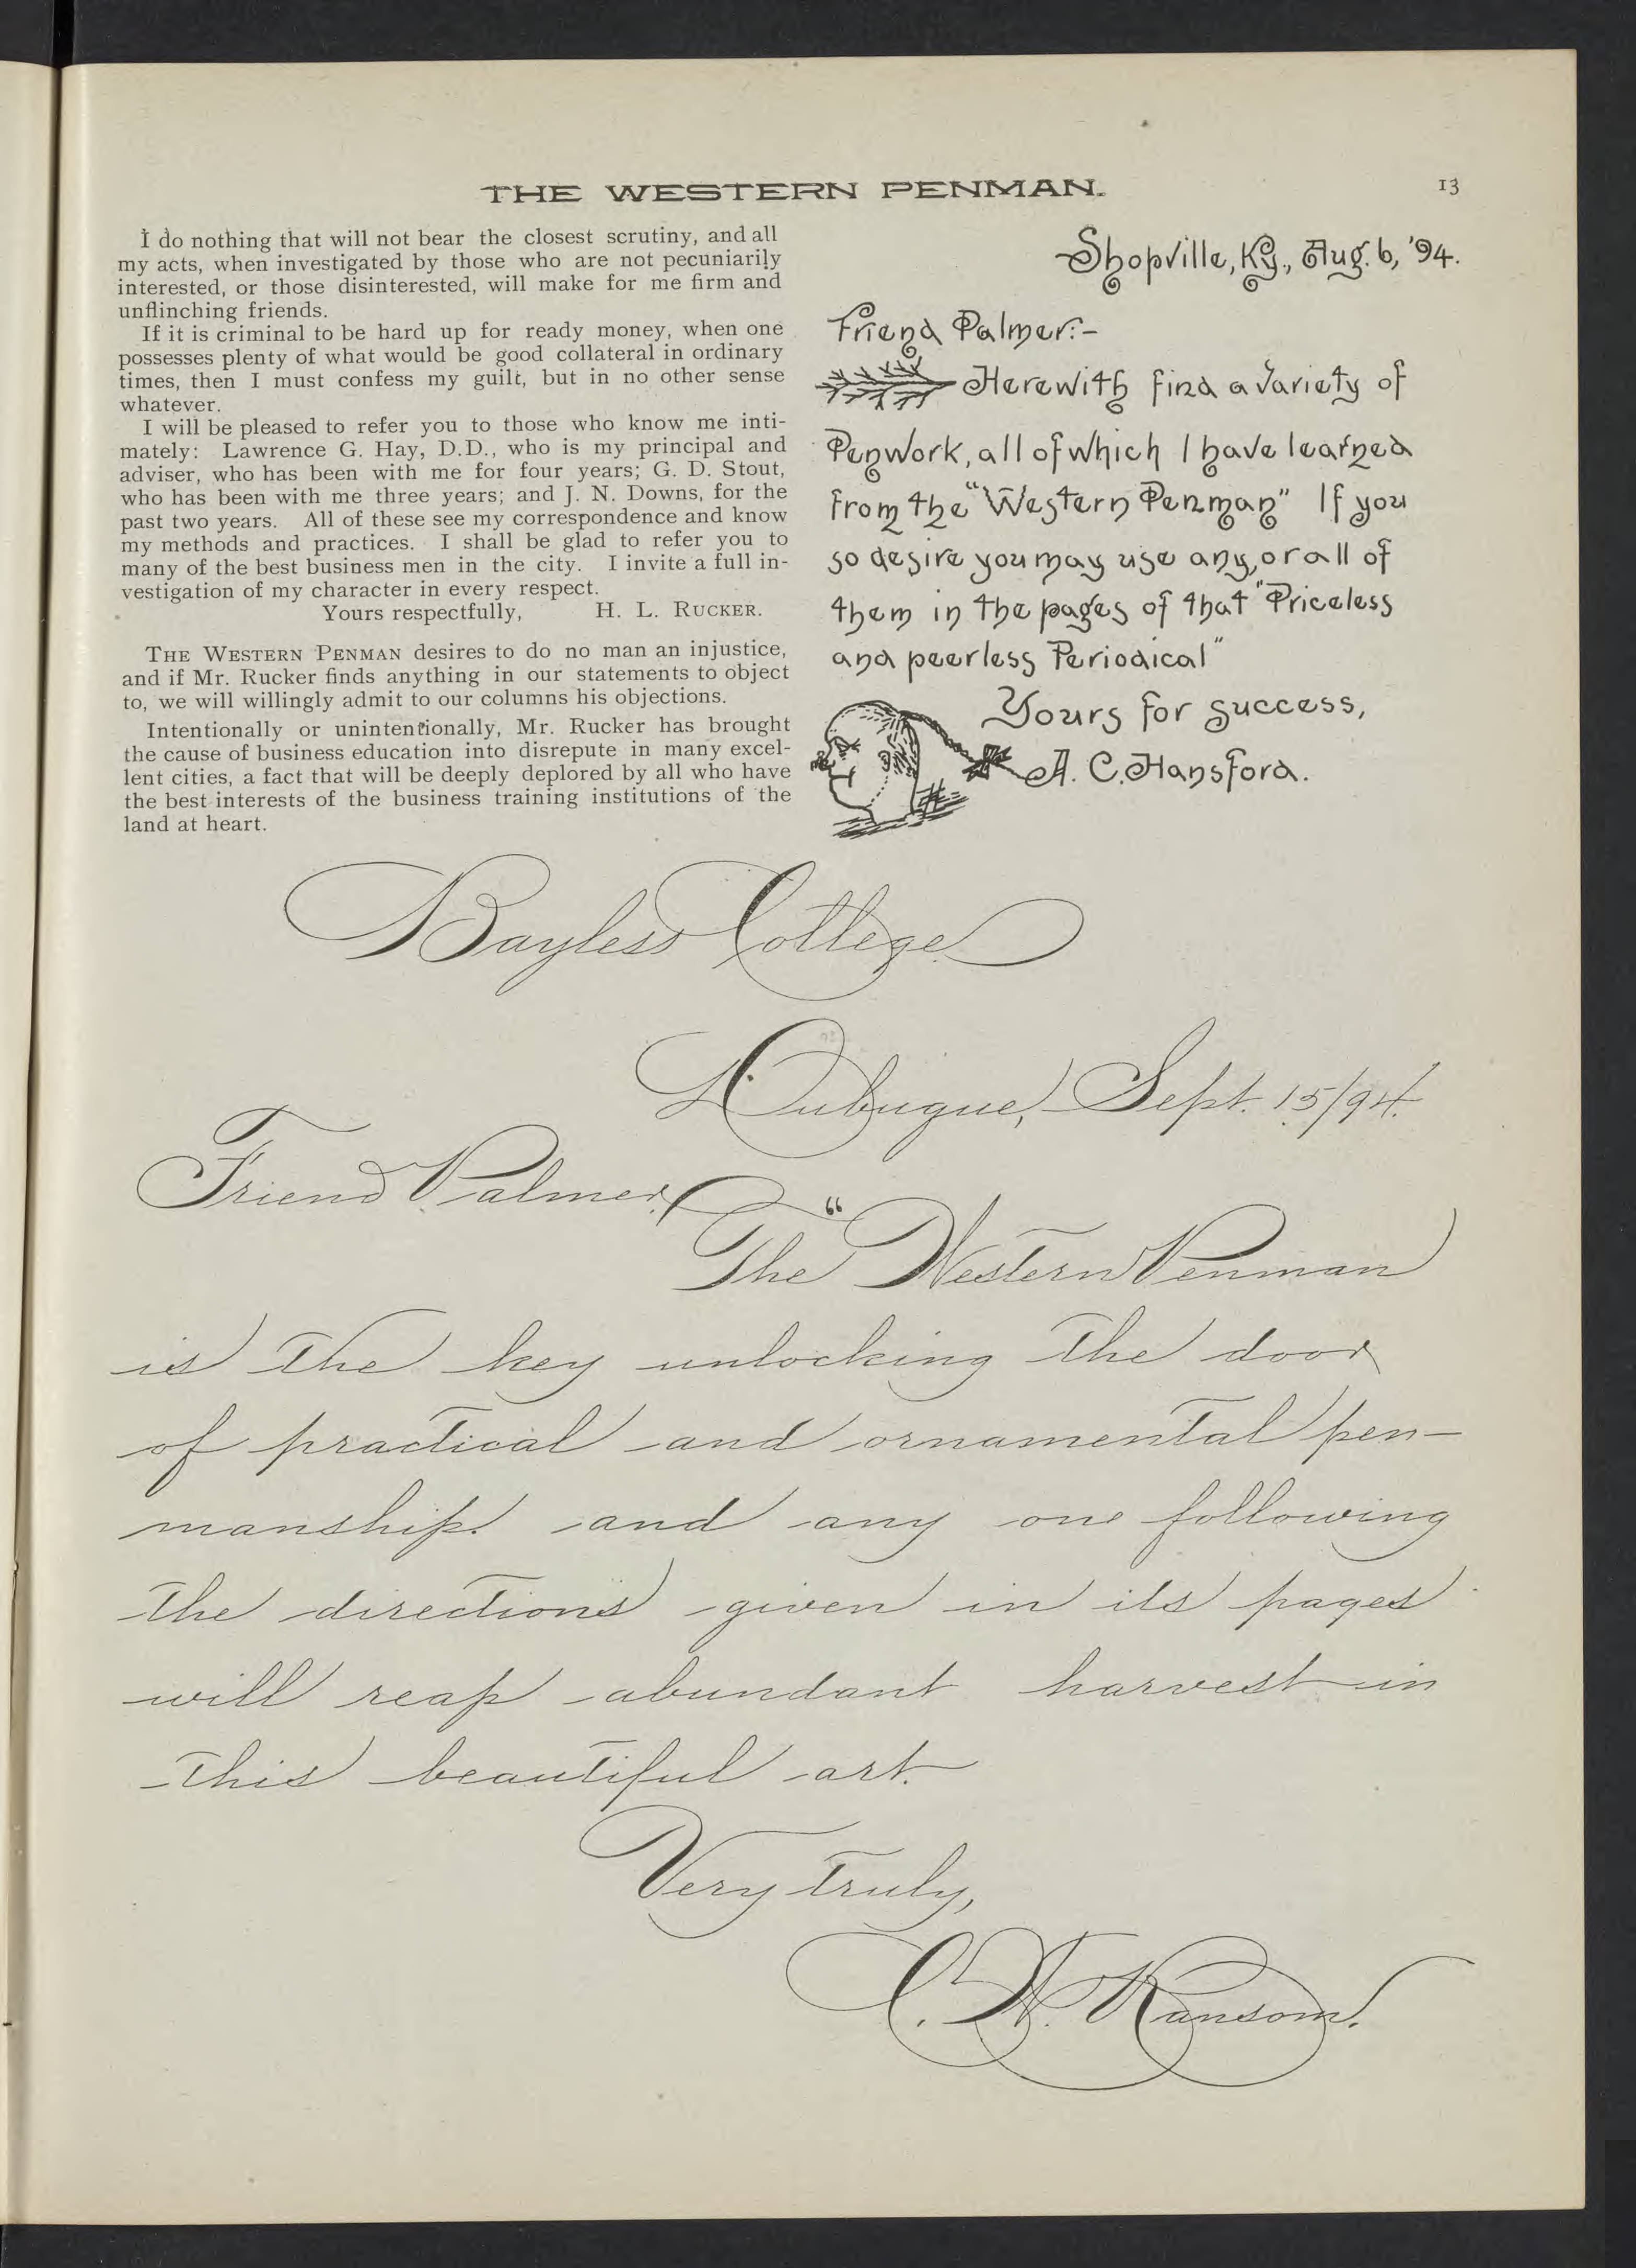 THE WESTERN PENMAN.
13
I do nothing that will not bear the closest scrutiny, and all
my acts, when investigated by those who are not pecuniarily
interested, or those disinterested, will make for me firm and
unflinching friends.
If it is criminal to be hard up for ready money, when one
possesses plenty of what would be good collateral in ordinary
times, then I must confess my guilt, but in no other sense
whatever.
I will be pleased to refer you to those who know me inti-
mately: Lawrence G. Hay, D.D., who is my principal and
adviser, who has been with me for four years; G. D. Stout,
who has been with me three years; and J. N. Downs, for the
past two years. All of these see my correspondence and know
my methods and practices. I shall be glad to refer you to
many of the best business men in the city. I invite a full in-
vestigation of my character in every respect.
Yours respectfully, H. L. RUCKER.
THE WESTERN PENMAN desires to do no man an injustice,
and if Mr. Rucker finds anything in our statements to object
to, we will willingly admit to our columns his objections.
Intentionally or unintentionally, Mr. Rucker has brought
the cause of business education into disrepute in many excel-
lent cities, a fact that will be deeply deplored by all who have
the best interests of the business training institutions of the
land at heart.
Shopville, Ky., Aug. 6, '94.
Friend Palmer:-
Herewith find a variety of
Penwork, all of which I have learned
from the "Western Penman" If you
so desire you may use any, or all of
them in the pages of that "Priceless
and peerless Periodical"
Yours for success,
A. C. Hansford.
Bayless College.
Dubuque, Sept. 15/94.
Friend Palmer,
The "Western Penman
is the key unlocking the door
of practical and ornamental pen-
manship. and any one following
the directions given in its pages
will reap abundant harvest in
this beautiful art.
Very truly,
C. W. Ransom.